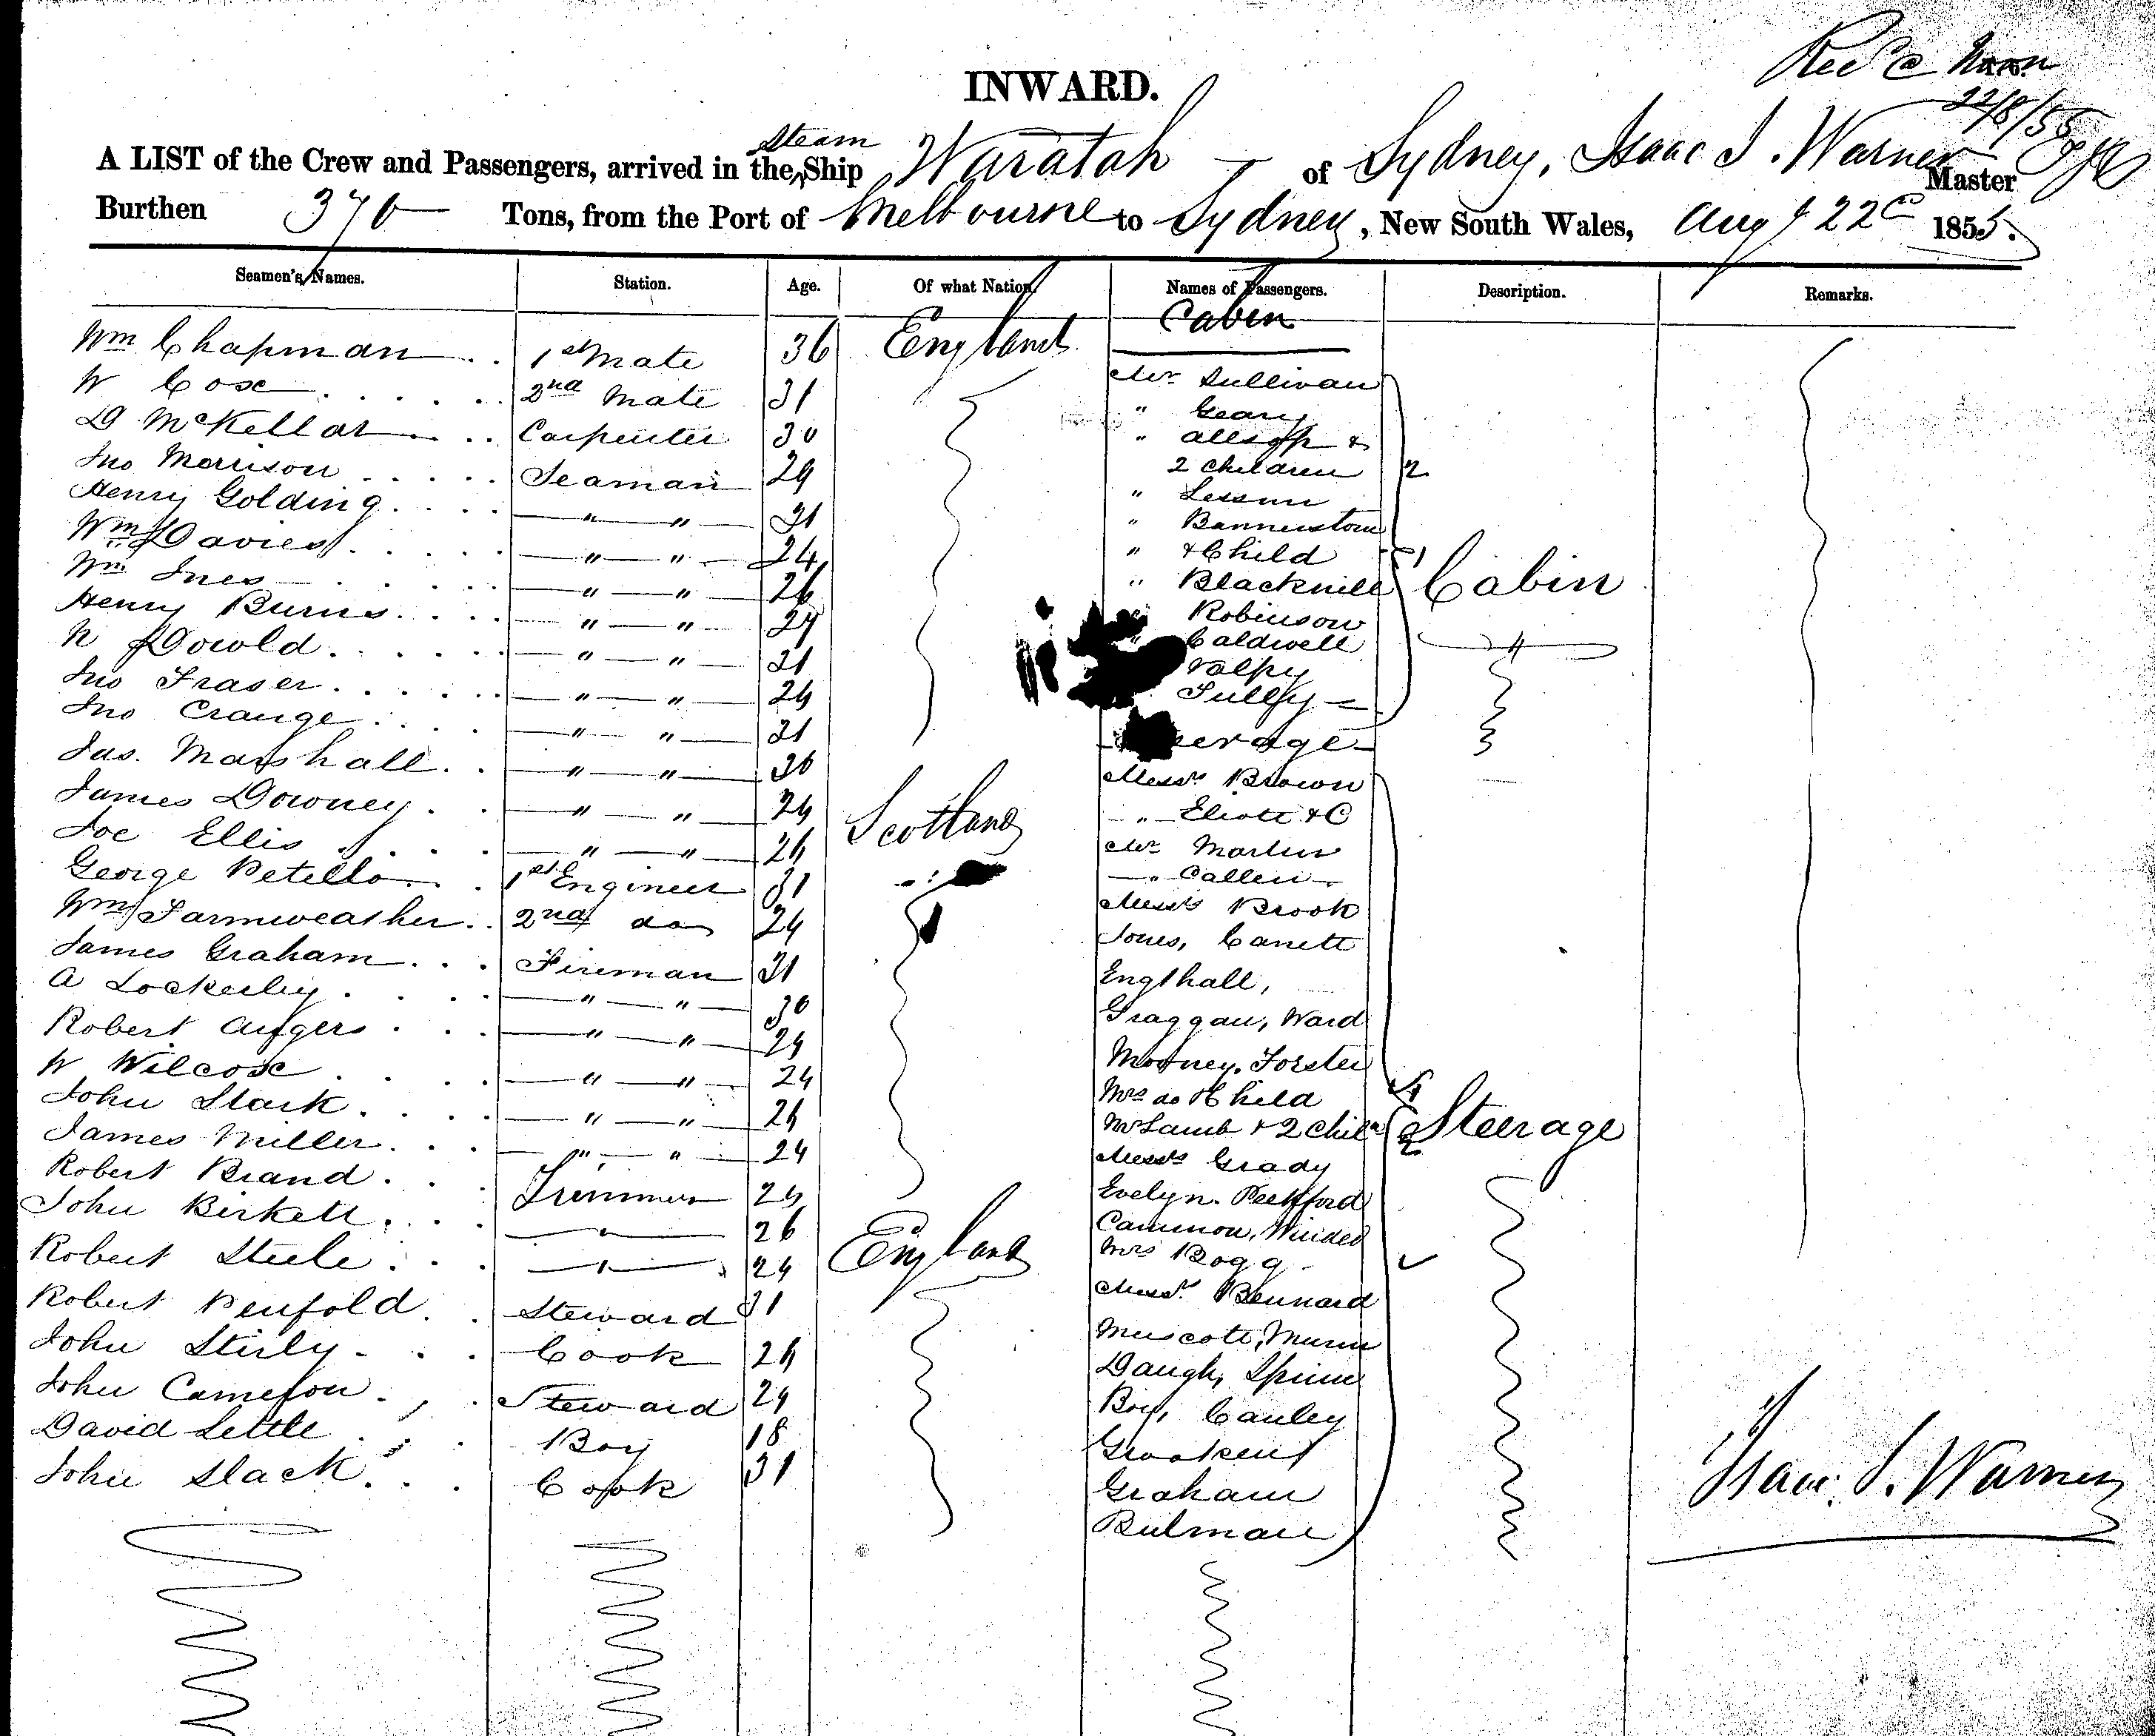 Recd @ Noon
22/8/55
INWARD.
A LIST of the Crew and Passengers, arrived in the Steam Ship Waratah of Sydney, Isaac S. Warner Master
Burthen 370 Tons, from the Port of Melbourne to Sydney, New South Wales, Augt 22d 1855.
Seamen's Names. Station. Age. Of what Nation. Names of Passengers. Description. Remarks.
Cabin
Wm Chapman 1st Mate 36 England
W Cose 2nd Mate 31 Mr Sullivan
D McKellar Carpenter 30 " Geary
" Allsopp &
Jno Morrison Seaman 29 2 Children 2
Henry Golding " " 31 "
Wm Davies " " 24 "
" & Child 1
Wm Ines " " 26 " Blacknell Cabin
Henry Burns " " 29 Robinson
N Dowld " " 31 Caldwell "
Jno Fraser " " 29 Valpy
Tully
Jno Crange " " 31
Jas. Marshall " " 36 Messrs Brown
James Downey " " 29 Scotland " Eliott & C
Joe Ellis " " 26 Mr Martin
George 1st Engineer 31 " Callen
Wm Farmweather 2nd do 29 Messrs Brook
James Graham Fireman 31 Jones,
A Lockerby " " 36 Engthall,
Robert " " 29 Graggan, Ward
W Wilcose " " 24 Mooney, Forster
John Stark " " 26 Mrs do & Child 1
James Miller " " 29 Mrs Lamb & 2 Chiln 2 Steerage
Messrs Grady
Robert Brand Trimmer 29 Evelyn.
John Birkett " 26 Winder
Robert Steele " 29 England Mrs Bogg
Robert Penfold Steward 31 Messrs Bennard
John Stirly Cook 26 Muscott, Munn
Daugh,
John Cameron Steward 29 Boy, Cauley
David Little Boy 18
John Slack Cook 31 Graham
Bulman
Isaac S. Warner